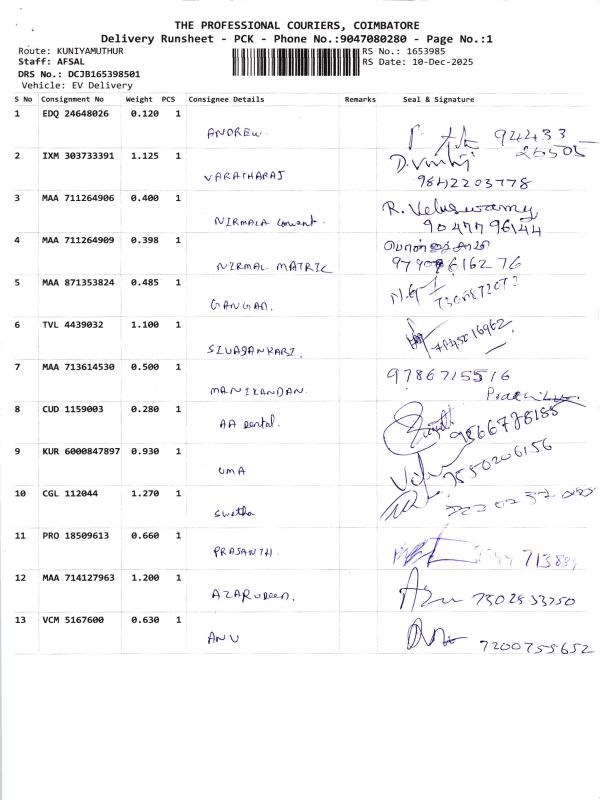 THE PROFESSIONAL COURIERS, COIMBATORE
Delivery Runsheet - PCK - Phone No.:9047080280 - Page No.:1
Route: KUNIYAMUTHUR RS No.: 1653985
Staff: AFSAL RS Date: 10-Dec-2025
DRS No.: DCJB165398501
Vehicle: EV Delivery
S No Consignment No Weight PCS Consignee Details Remarks Seal & Signature
1 EDQ 24648026 0.120 1
ANDREW. 94433
26505
2 IXM 303733391 1.125 1
VARATHARAJ 9842203778
3 MAA 711264906 0.400 1 R. Veluswamy
NIRMALA convent. 9047796144
4 MAA 711264909 0.398 1
NIRMAL MATRIC
5 MAA 871353824 0.485 1
GANGAN.
6 TVL 4439032 1.100 1
SIVASANKARI.
7 MAA 713614530 0.500 1 9786715516
MANIKANDAN.
8 CUD 1159003 0.280 1
AA Dental.
9 KUR 6000847897 0.930 1 7550206156
UMA
10 CGL 112044 1.270 1
Swetha
11 PRO 18509613 0.660 1
PRASANTH.
12 MAA 714127963 1.200 1
AZARUDEEN.
13 VCM 5167600 0.630 1
ANU 7200755652